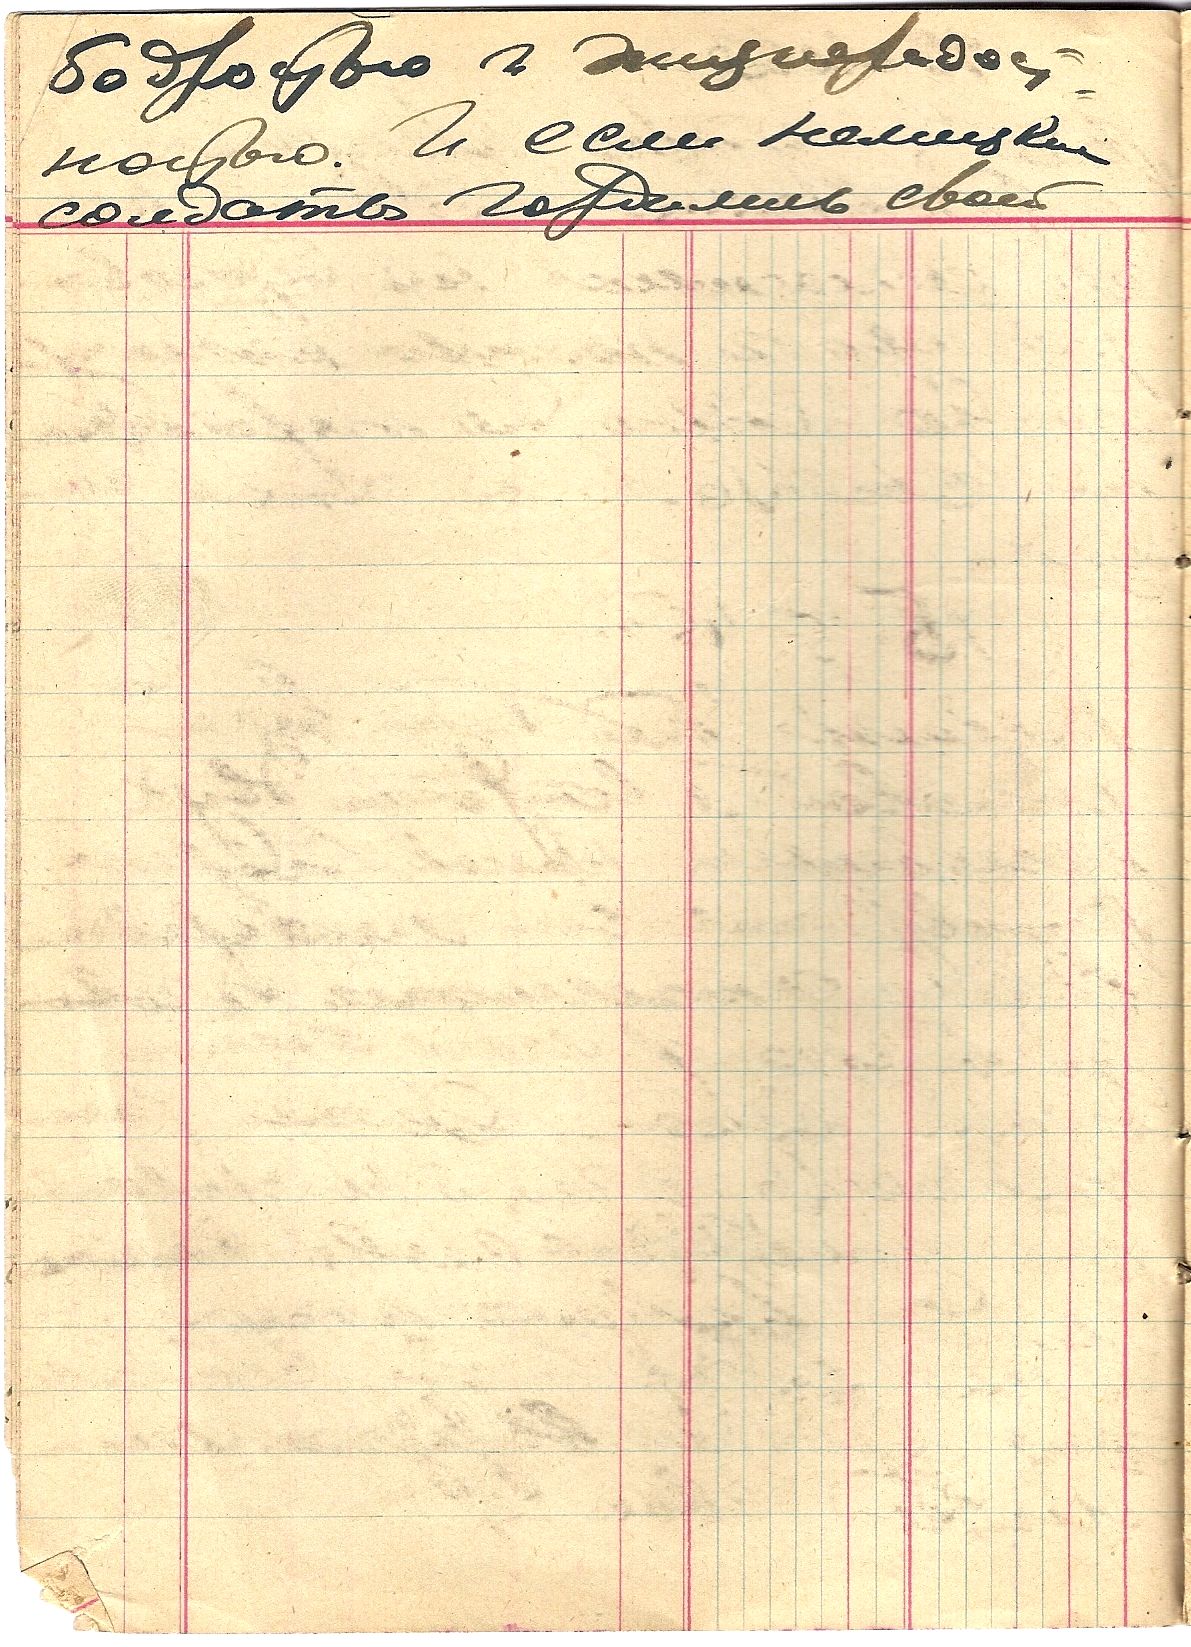 бодростью и жизнерадост=
ностью. И если немецкие
солдаты гордились своей